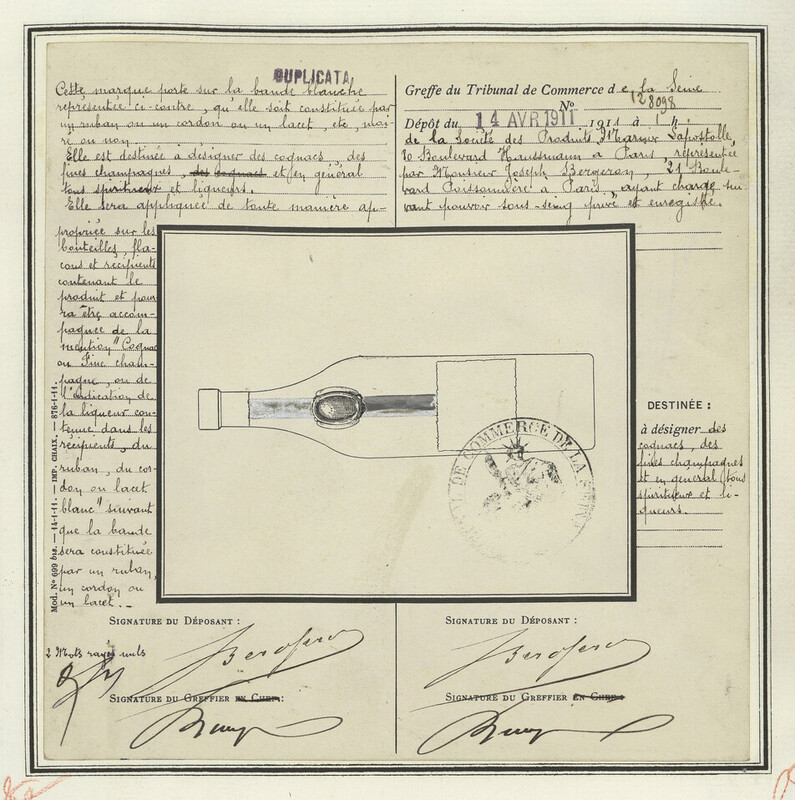 DUPLICATA
Cette marque porte sur la bande blanche
représentée ci-contre, qu'elle soit constituée par
un ruban ou un cordon ou un lacet, etc, moi-
ré ou non.
Elle est destinée à désigner des cognacs, des
fines champagnes, des cognacs et en général
tous spiritueux et liqueurs.
Elle sera appliquée de toute manière ap-
propriée sur les
bouteilles, fla-
cons et récipients
contenant le
produit et pour-
ra être accom-
pagnée de la
mention "Cognac
ou Fine cham-
pagne, ou de
l'indication de
la liqueur con-
tenue dans les
récipients, du
ruban, du cor-
don ou lacet
blanc" suivant
que la bande
sera constituée
par un ruban,
un cordon ou
un lacet.-
Mod. No 699 bis. — 14-1-11. — IMP. CHAIX. — 876-1-11.
Greffe du Tribunal de Commerce de la Seine
No 128098
Dépôt du 14 AVR 1911 1911 à 1 h.
de la Société des Produits Marnier Lapostolle,
Boulevard Haussmann à Paris représentée
par Monsieur Joseph Bergeron, 21 Boule-
vard Poissonnière à Paris, ayant charge sui-
vant pouvoir sous-seing privé et enregistré.
DE COMMERCE DE LA SEINE
DESTINÉE :
à désigner des
cognacs, des
fines champagnes
et en général tous
spiritueux et li-
queurs.
SIGNATURE DU DÉPOSANT :
2 Mots rayés nuls
SIGNATURE DU GREFFIER EN CHEF :
SIGNATURE DU DÉPOSANT :
SIGNATURE DU GREFFIER EN CHEF :